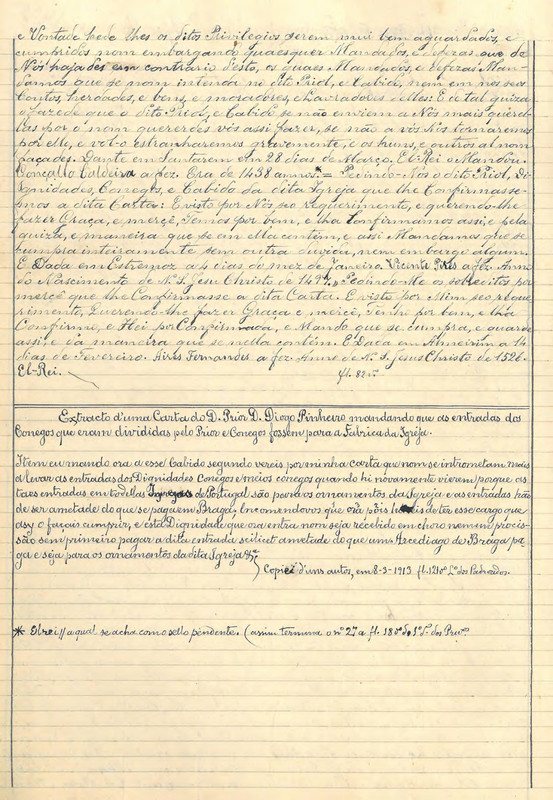 e Vontade hede lhes os ditos Privilegios serem mui bem aguardados, e
cumbridos nom embargando quaesquer Mandados, e defezas que de
Nós hajades em contrario desto, os quaes Mandados, e defezas Man-
damos que se nom intenda no dito Priol, e Cabido, nem em nos seos
Coutos, herdades, e bens, e moradores, e Lavradores delles: E de tal guiza
o fazede que o dito Priol, e Cabido se não enviem a Nós mais querel-
las por o nom quererdes vós assi fazer, se não a vós Nós tornaremos
por ello, e vol-o estranharemos gravemente, e os huns, e outros al nom
façades. Dante em Santarem 28 dias de Março. El-Rei o Mandou.
Gonçallo Caldeira a fez. Era de 1438 annos. = Pedindo-Nós o dito Priol, Di-
gnidades, Conegos, e Cabido da dita Igreja que lhe Confirmasse-
mos a dita Carta: E visto por Nós seu requerimento, e querendo-lhe
fazer Graça, e mercê, Temos por bem, e lha Confirmamos assi, e pela
guiza, e maneira que se em ella contém, e assi Mandamos que se
cumpra inteiramente sem outra duvida, nem embargo algum.
E Dada em Estremoz a 4 dias do mez de Janeiro. Vicente Pires a fez. Anno
do Nascimento de N. S. Jesu Christo de Pedindo-Me os sobreditos por
mercê que lhe Confirmasse a dita Carta. E visto por Mim seo reque-
rimento, Querendo-lhe fazer Graça e mercê, Tenho por bem, e lha
Confirmo, e Hei por Confirmada, e Mando que se cumpra, e guarde
assi, e da maneira que se nella contém. E Dada em Almeirim a 14
dias de Fevereiro. Aires Fernandes a fez. Anno de N. S. Jesus Christo de 1526.
El-Rei. fl. 82 v.
Extracto d'uma Carta do D. Prior D. Diogo Pinheiro mandando que as entradas dos
Conegos que eram divididas pelo Prior e Conegos fossem para a Fabrica da Igreja.
Item eu mando ora a esse Cabido segundo vereis por minha carta que nom se intrometam mais
a levar as entradas dos Dignidades Conegos e meios conegos quando hi novamente vierem porque as
taes entradas em todelas Igrejas de Portugal são pera os ornamentos da Igreja e as entradas hão
de ser ametade do que se paguem Braga, Encomendovos que ora pois deter esse cargo que
asy o façais cumprir, e esta Dignidade que ora entra nom seja recebido em choro nem em procis-
são sem primeiro pagar a dita entrada scilicet ametade do que um Arcediago de Braga pa-
ga e seja para os ornamentos da dita Igreja &.ª
Copiei d'uns autos, em 8-3-1913 fl. 121
* Elrei // a qual se acha com o sello pendente. (assim termina o nº 27 a fl. 18